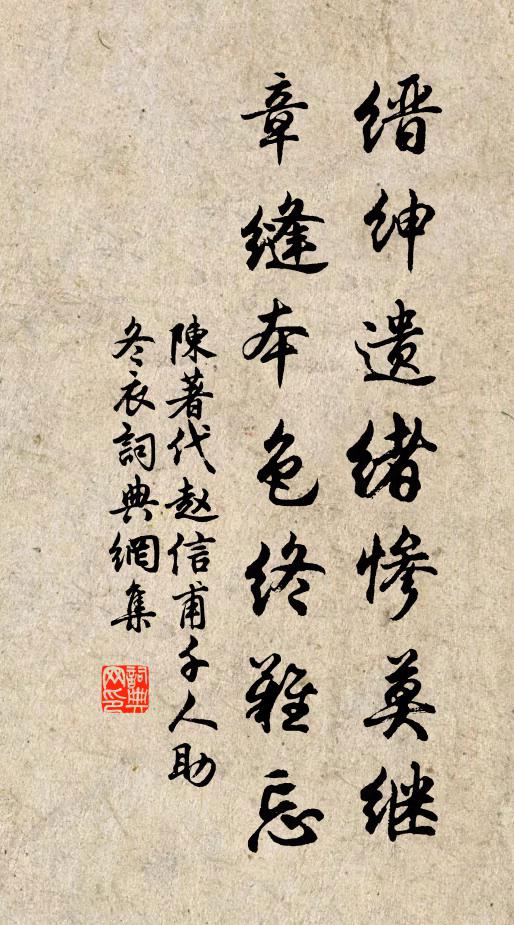 缙绅遗绪惨莫继
章缝本色终难忘
陳著代赵信甫千人助
冬衣詞典網集
詞典
网印